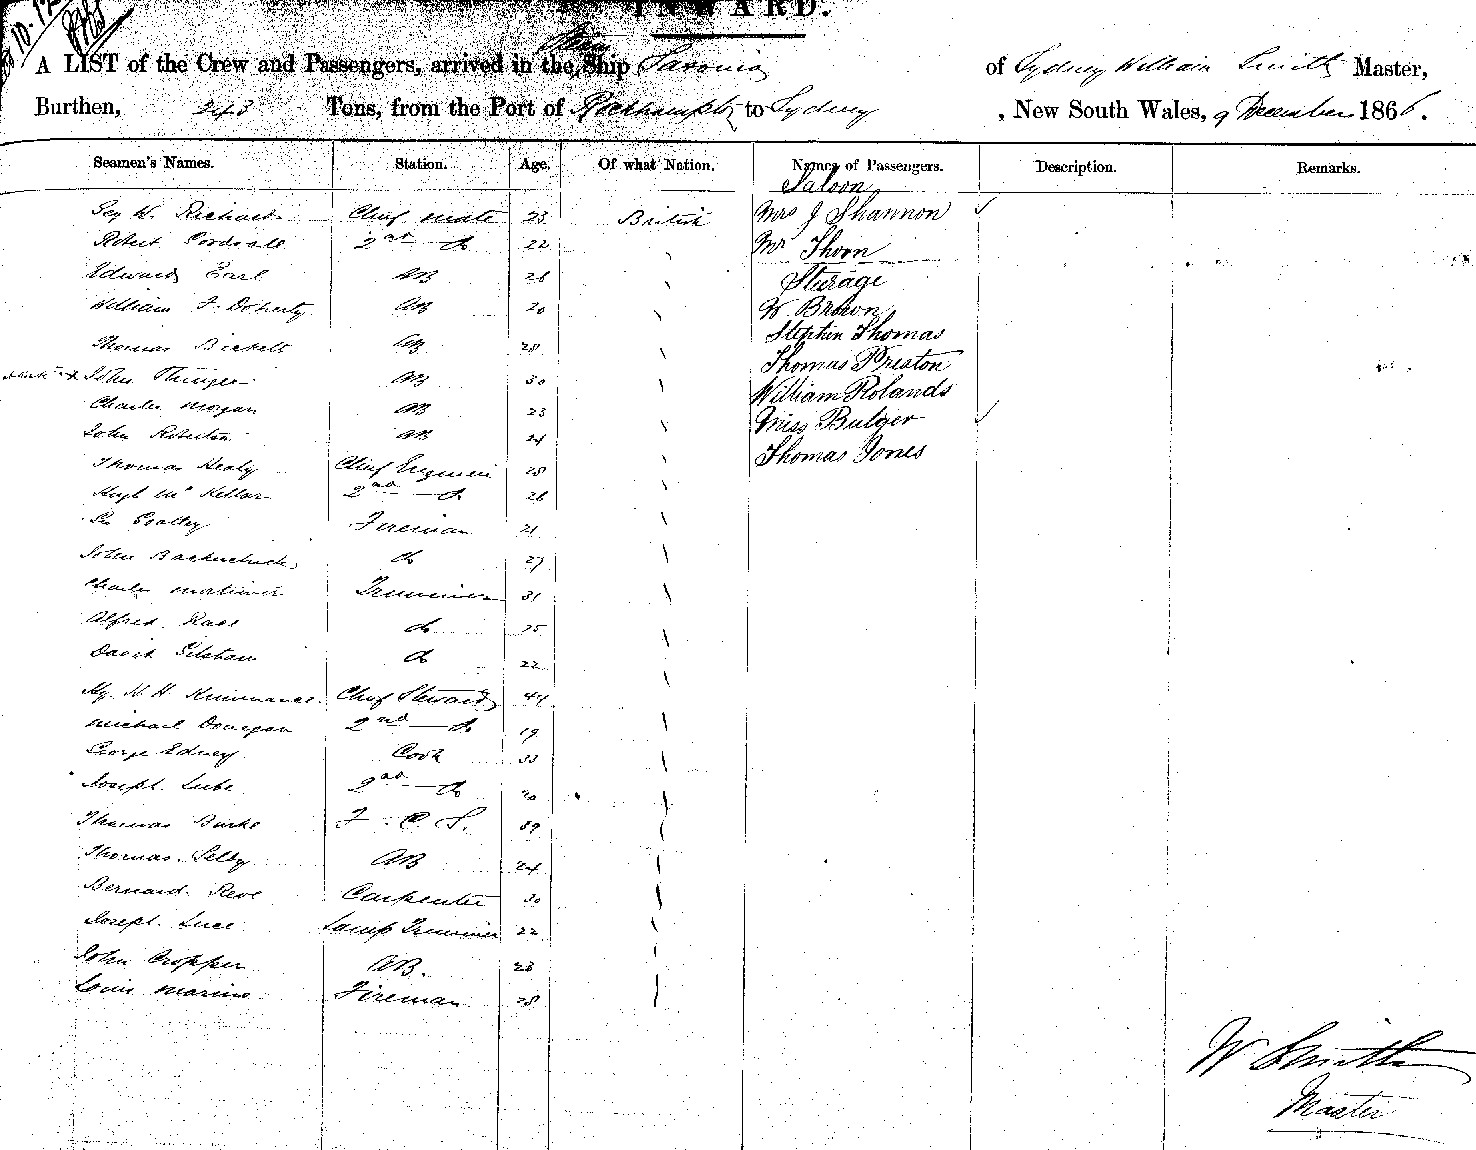 INWARD.
A LIST of the Crew and Passengers, arrived in the Ship Saxonia of Sydney William Smith Master,
Burthen, 243 Tons, from the Port of Rockhampton to Sydney, New South Wales, 9 December 1866.
Seamen's Names. Station. Age. Of what Nation. Names of Passengers. Description. Remarks.
Saloon
W. Richards Chief Mate 23 British Mrs J Shannon
Robert 2nd do 22 Mr Thorn
Edward Earl AB 26 Sturage
William F. Doherty AB 20 W. Brown
Stephen Thomas
Thomas Birkett AB 28
Thomas Preston
John AB 30
William Rolands
Charles Morgan AB 23 Miss Bulger
John AB 24
Thomas Jones
Thomas Healy Chief Engineer 28
Hugh McKellar 2nd do 26
Fireman 21
John do 27
Charles Mortimer Trimmer 31
Alfred do 25
David do 22
Hy. N. H. Chief Steward 44
Michael Donegan 2nd do 19
George Edney Cook 33
Joseph 2nd do 20
Thomas Burke F. C. S. 39
Thomas Selby AB 24
Bernard Carpenter 30
Joseph Luce Lamp Trimmer 22
John Cropper AB. 23
Louis Marino Fireman 28
W Smith
Master